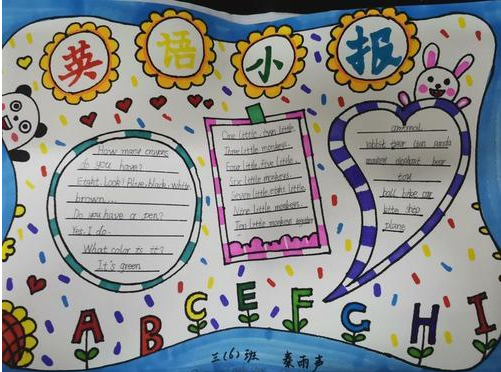 英语小报
How many crayons
do you have?
Eight. Look! Blue, black, white
brown...
Do you have a pen?
Yes. I do.
What color is it?
It's green
One little, two little
Three little monkeys.
Four little, five little,
Six little monkeys.
Seven little eight little
Nine little monkeys.
Ten little monkeys
animal
rabbit bear lion panda
monkey elephant bear
toy
ball bike car
kite
plane
A B C E F G H I
三(6)班 秦雨声